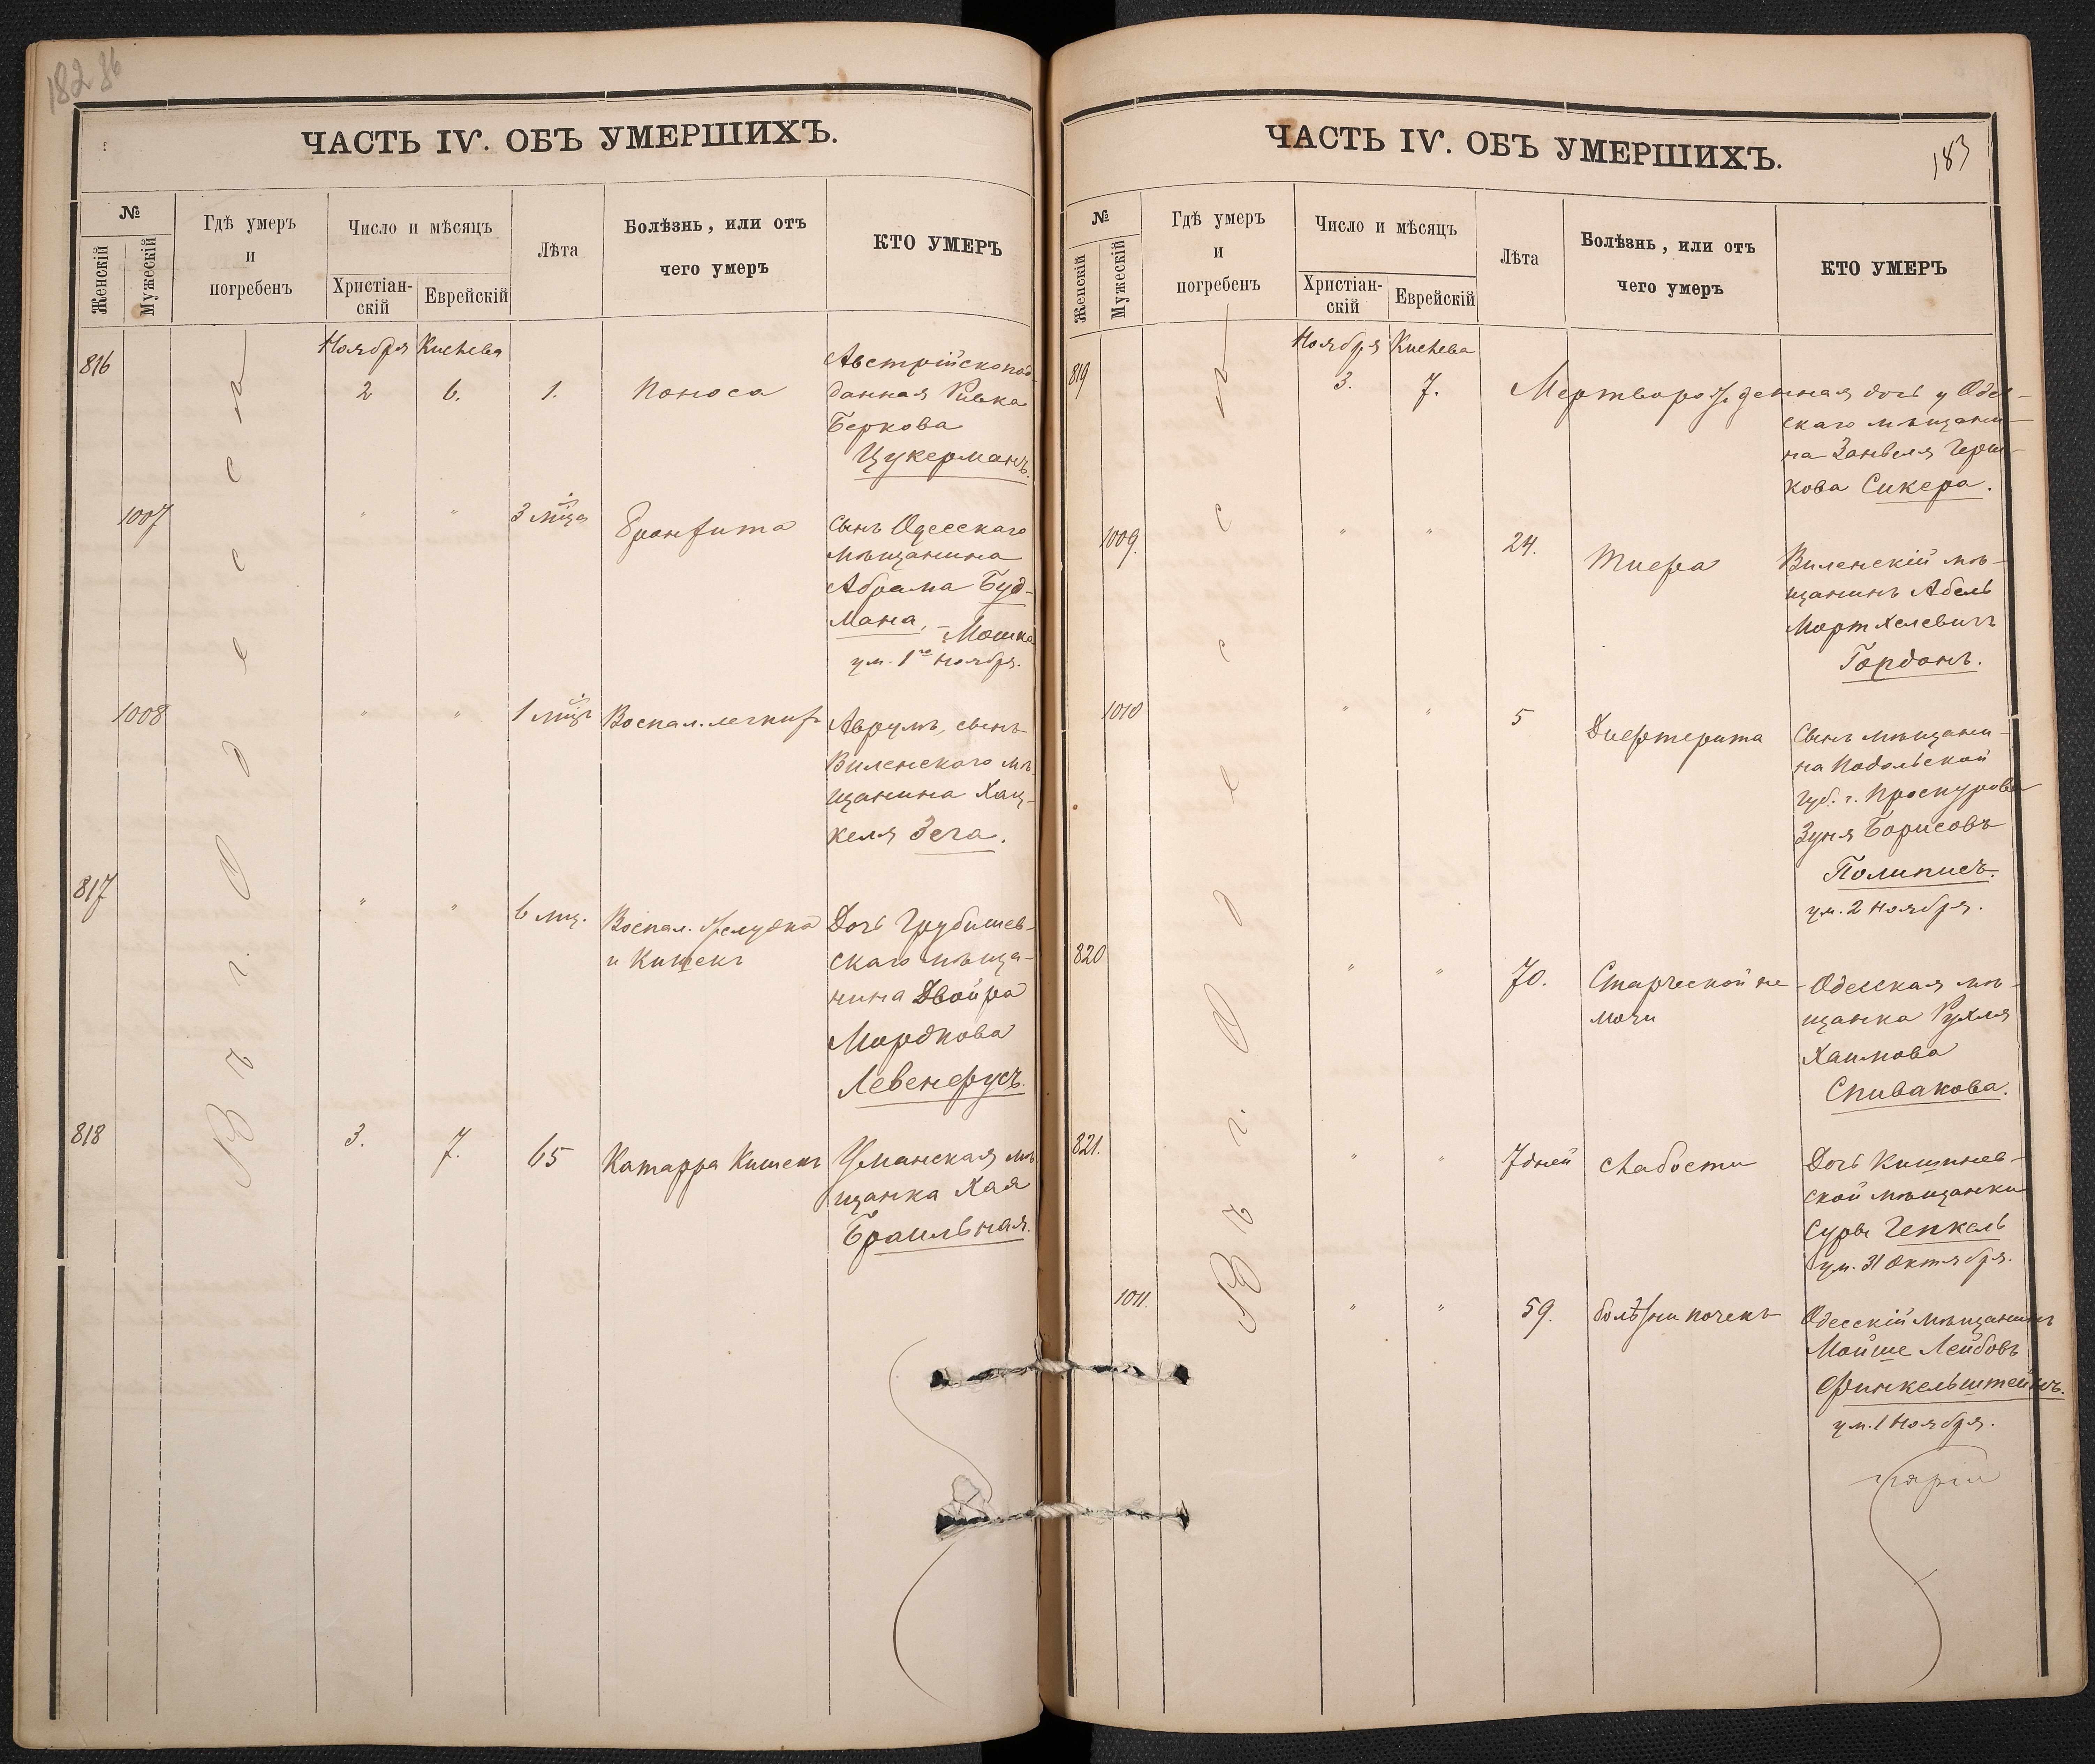 182 86
ЧАСТЬ IV. ОБЪ УМЕРШИХЪ.
№
Женскій
Мужескій
Гдѣ умеръ
и
погребенъ
Число и мѣсяцъ
Христіан-
скій
Еврейскій
Лѣта
Болѣзнь, или отъ
чего умеръ
КТО УМЕРЪ
Въ г. Одессѣ
Ноября Кислева
816
2 6. 1. Поноса
Австрійскопод-
данная Ривка
Беркова
Цукерманъ.
1007 " " 3 мца Бронхита
Сынъ Одесскаго
мѣщанина
Абрама Буд-
мана, - Мошка
ум. 1го ноября.
1008 " " 1 мцъ Воспал. легкихъ
Аврумъ, сынъ
Виленскаго мѣ-
щанина Хац-
келя Зега.
817 " " 6 мц. Воспал. желудка
и Кишекъ
Дочь Грубишев-
скаго мѣща-
нина Двойра
Мордкова
818 3. 7. 65 Катарра Кишекъ
Уманская мѣ-
щанка Хая
Браильная.
183
ЧАСТЬ IV. ОБЪ УМЕРШИХЪ.
№
Женскій
Мужескій
Гдѣ умеръ
и
погребенъ
Число и мѣсяцъ
Христіан-
скій
Еврейскій
Лѣта
Болѣзнь, или отъ
чего умеръ
КТО УМЕРЪ
Въ г. Одессѣ
Ноября Кислева
819 3. 7. Мертворожденная дочь у Одес-
скаго мѣщани-
на Занвеля Герш-
кова Сикера.
1009. " " 24. Тифа
Виленскій мѣ-
щанинъ Абель
Мортхелевичъ
Гордонъ.
1010 " " 5 Дифтерита
Сынъ мѣщани-
на Подольской
Губ. г. Проскурова
Зуня Борисовъ
ум. 2 ноября.
820 " " 70. Старческой не-
мочи
Одесская мѣ-
щанка Рухля
Хаимова
Спивакова.
821. " " 7 дней слабости
Дочь Кишинев-
ской мѣщанки
Суры Гепкель
ум. 31 Октября.
1011. " " 59. болѣзни почекъ
Одесскій мѣщанинъ
Мойше Лейбовъ
Финкельштейнъ.
ум. 1 ноября.